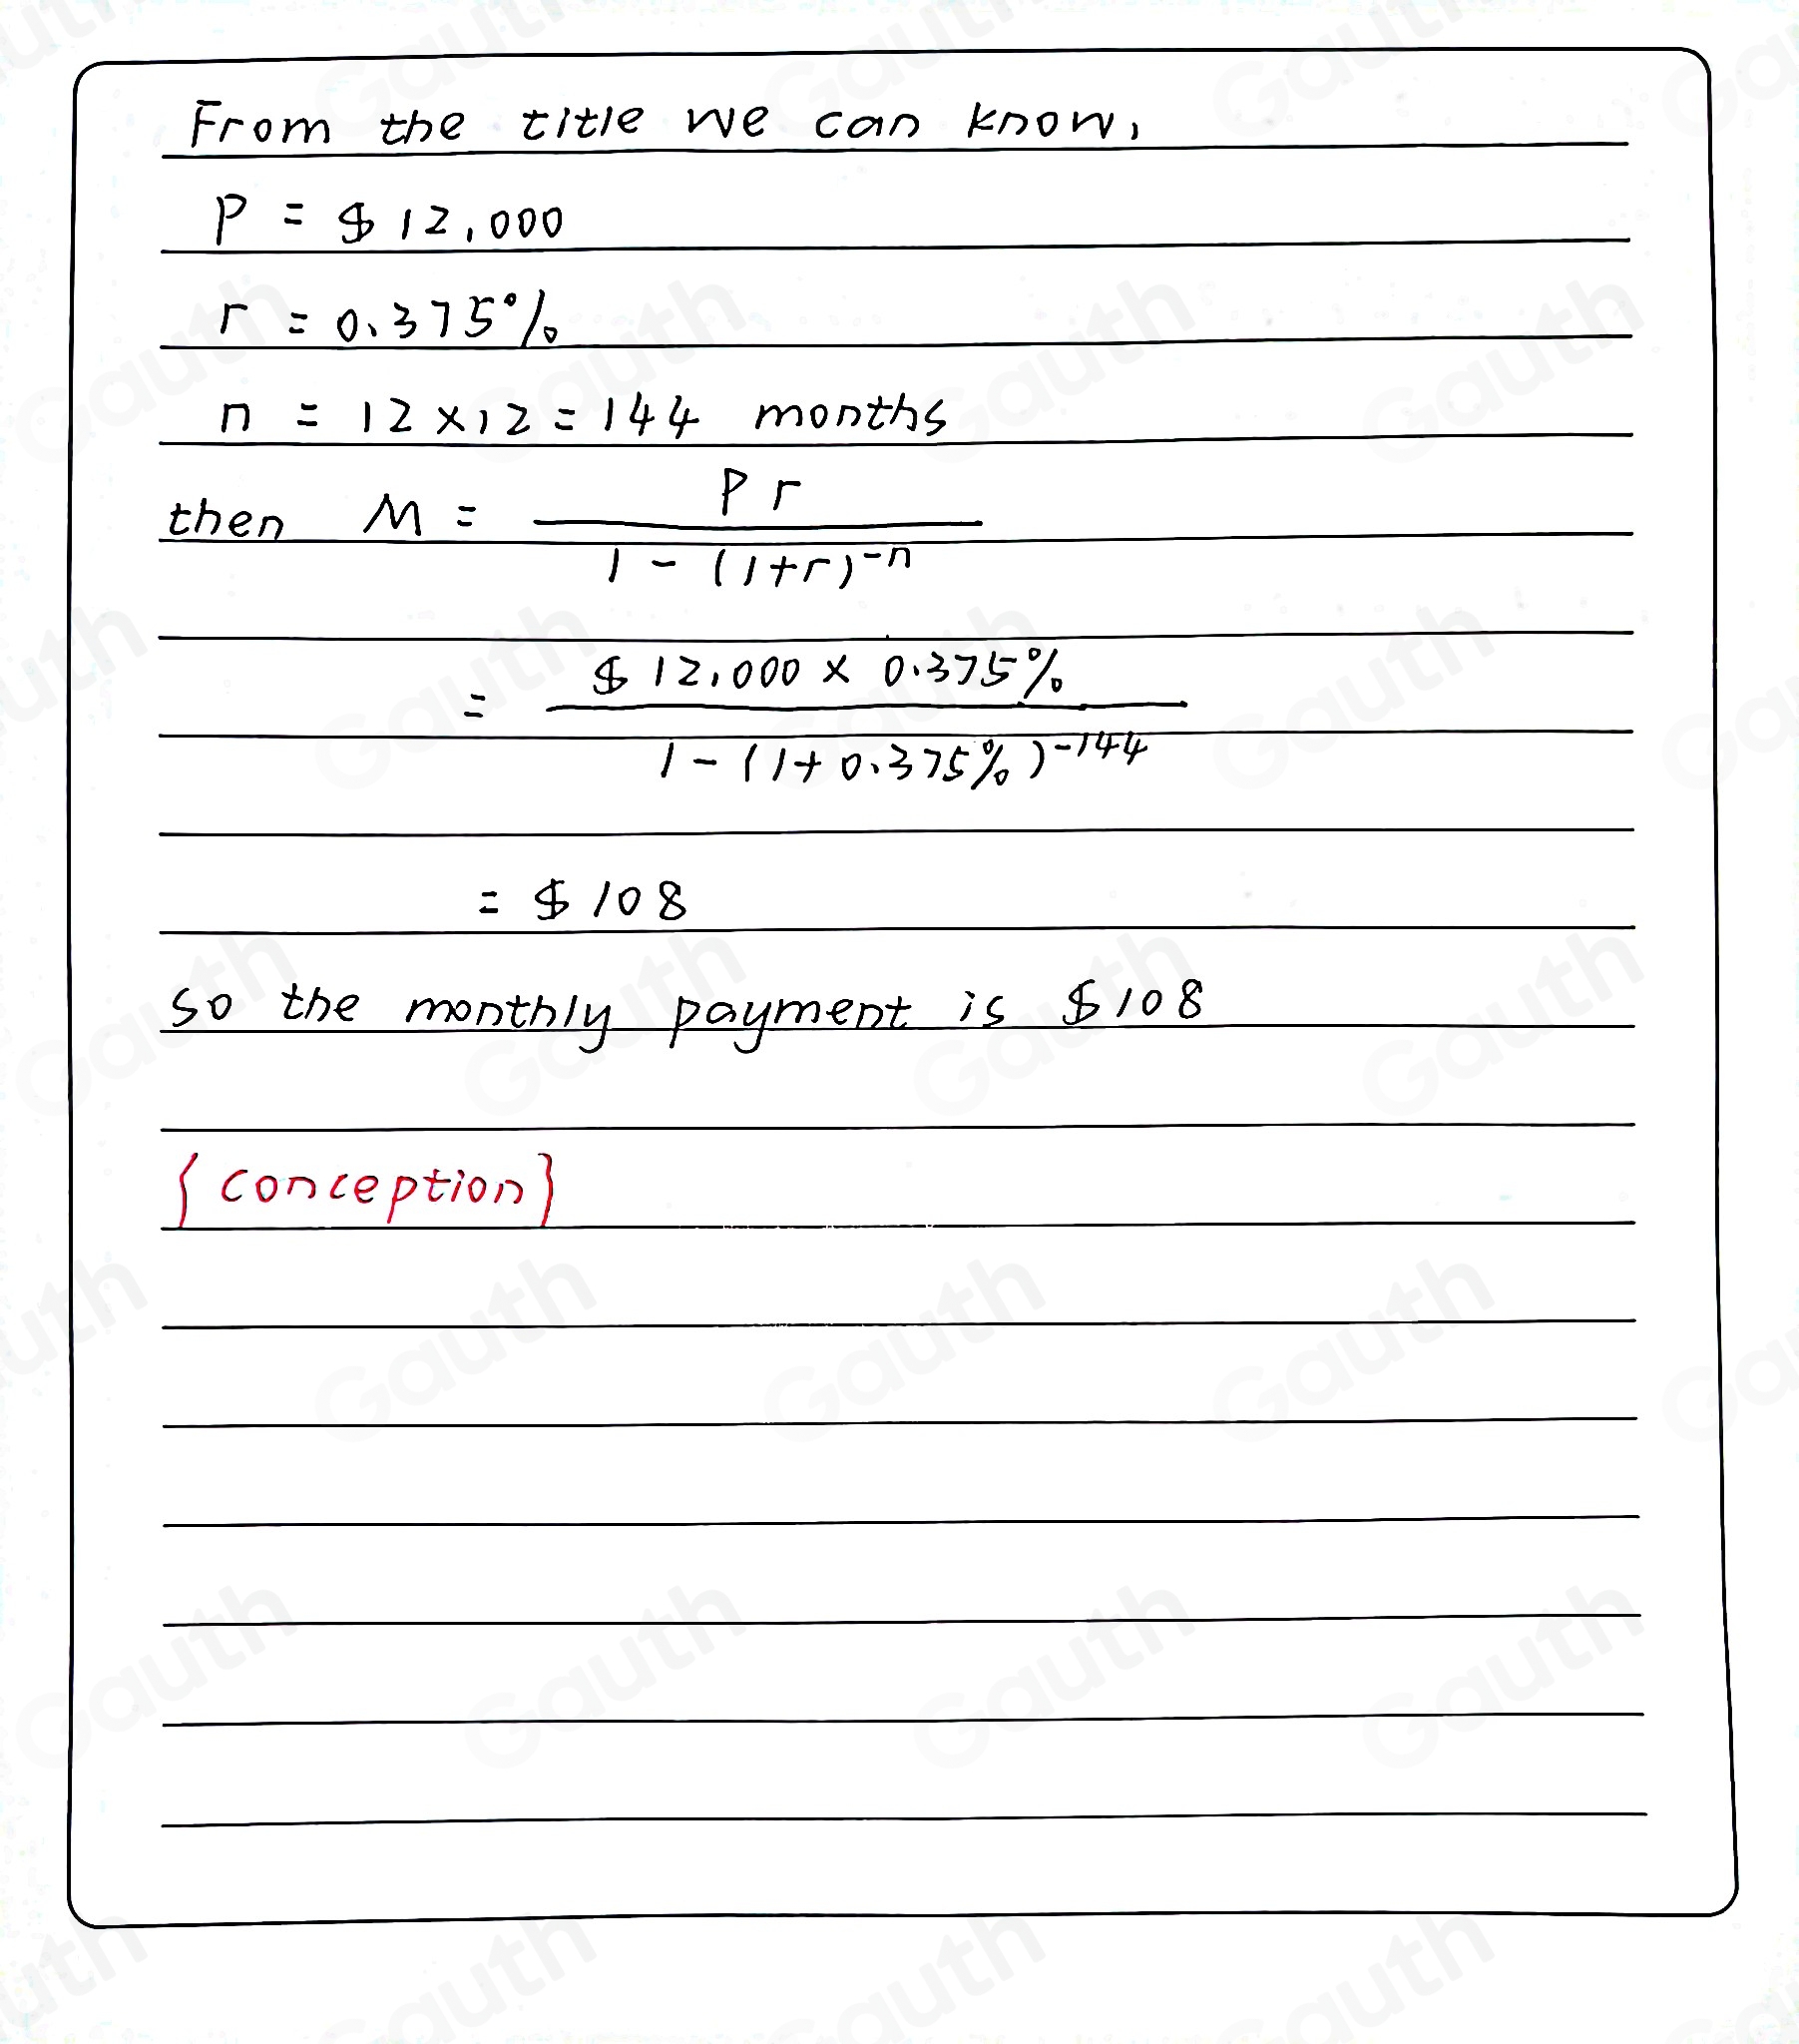 From the title we can know,
P = $12,000
r = 0.375%
n = 12×12 = 144 months
then M = Pr / 1-(1+r)^-n
= $12,000 × 0.375% / 1-(1+0.375%)^-144
= $108
so the monthly payment is $108
{conception}